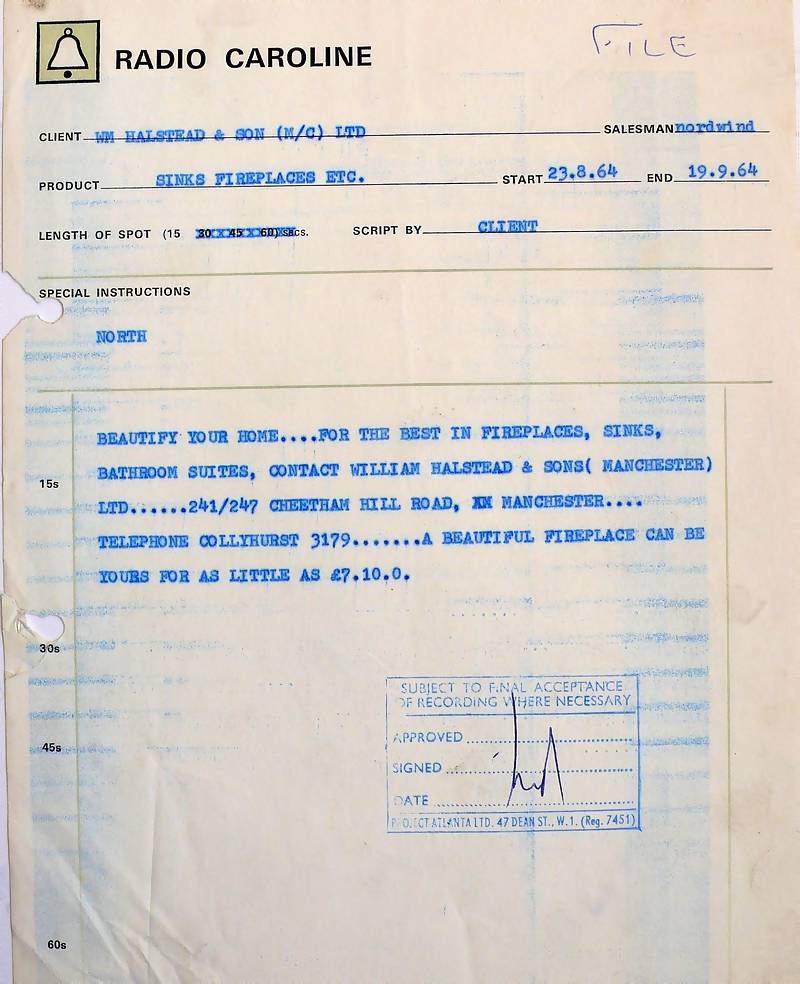 FILE
RADIO CAROLINE
CLIENT WM HALSTEAD & SON (M/C) LTD SALESMAN nordwind
PRODUCT SINKS FIREPLACES ETC. START 23.8.64 END 19.9.64
LENGTH OF SPOT (15 30 45 60) secs. SCRIPT BY CLIENT
SPECIAL INSTRUCTIONS
NORTH
BEAUTIFY YOUR HOME....FOR THE BEST IN FIREPLACES, SINKS,
BATHROOM SUITES, CONTACT WILLIAM HALSTEAD & SONS( MANCHESTER)
15s
LTD......241/247 CHEETHAM HILL ROAD, MANCHESTER....
TELEPHONE COLLYHURST 3179.......A BEAUTIFUL FIREPLACE CAN BE
YOURS FOR AS LITTLE AS £7.10.0.
30s
SUBJECT TO FINAL ACCEPTANCE
OF RECORDING WHERE NECESSARY
APPROVED
45s
SIGNED
DATE
PROJECT ATLANTA LTD. 47 DEAN ST., W.1. (Reg. 7451)
60s